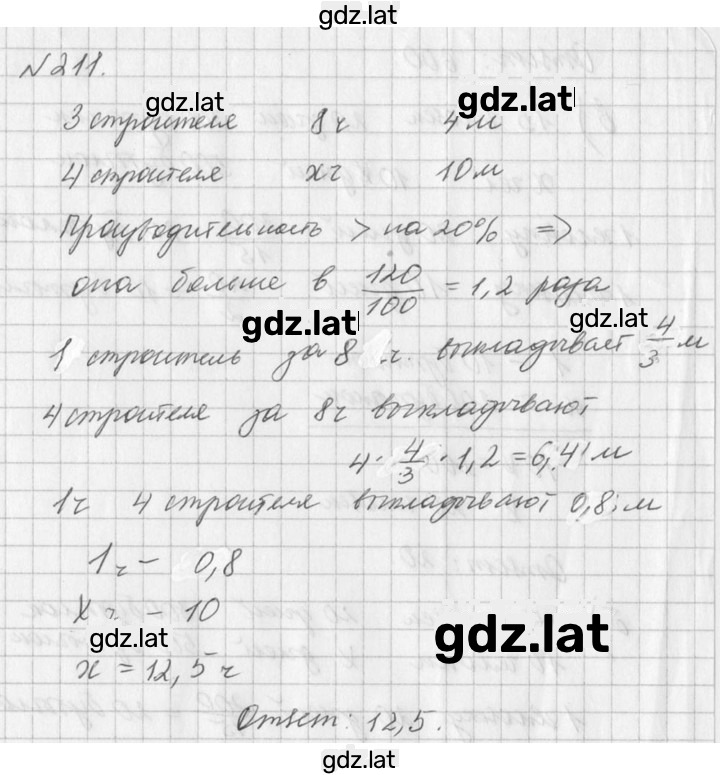 gdz.lat
N211.
gdz.lat gdz.lat
3 строителя 8 ч 4 м
4 строителя x ч 10 м
Производительность > на 20% =>
она больше в 120/100 = 1,2 раза
gdz.lat gdz.lat
1 строитель за 8 ч. выкладывает 4/3 м
4 строителя за 8 ч выкладывают
4 · 4/3 · 1,2 = 6,4 м
1 ч 4 строителя выкладывают 0,8 м
1 ч – 0,8
x ч – 10
gdz.lat gdz.lat
x = 12,5 ч
Ответ: 12,5.
gdz.lat